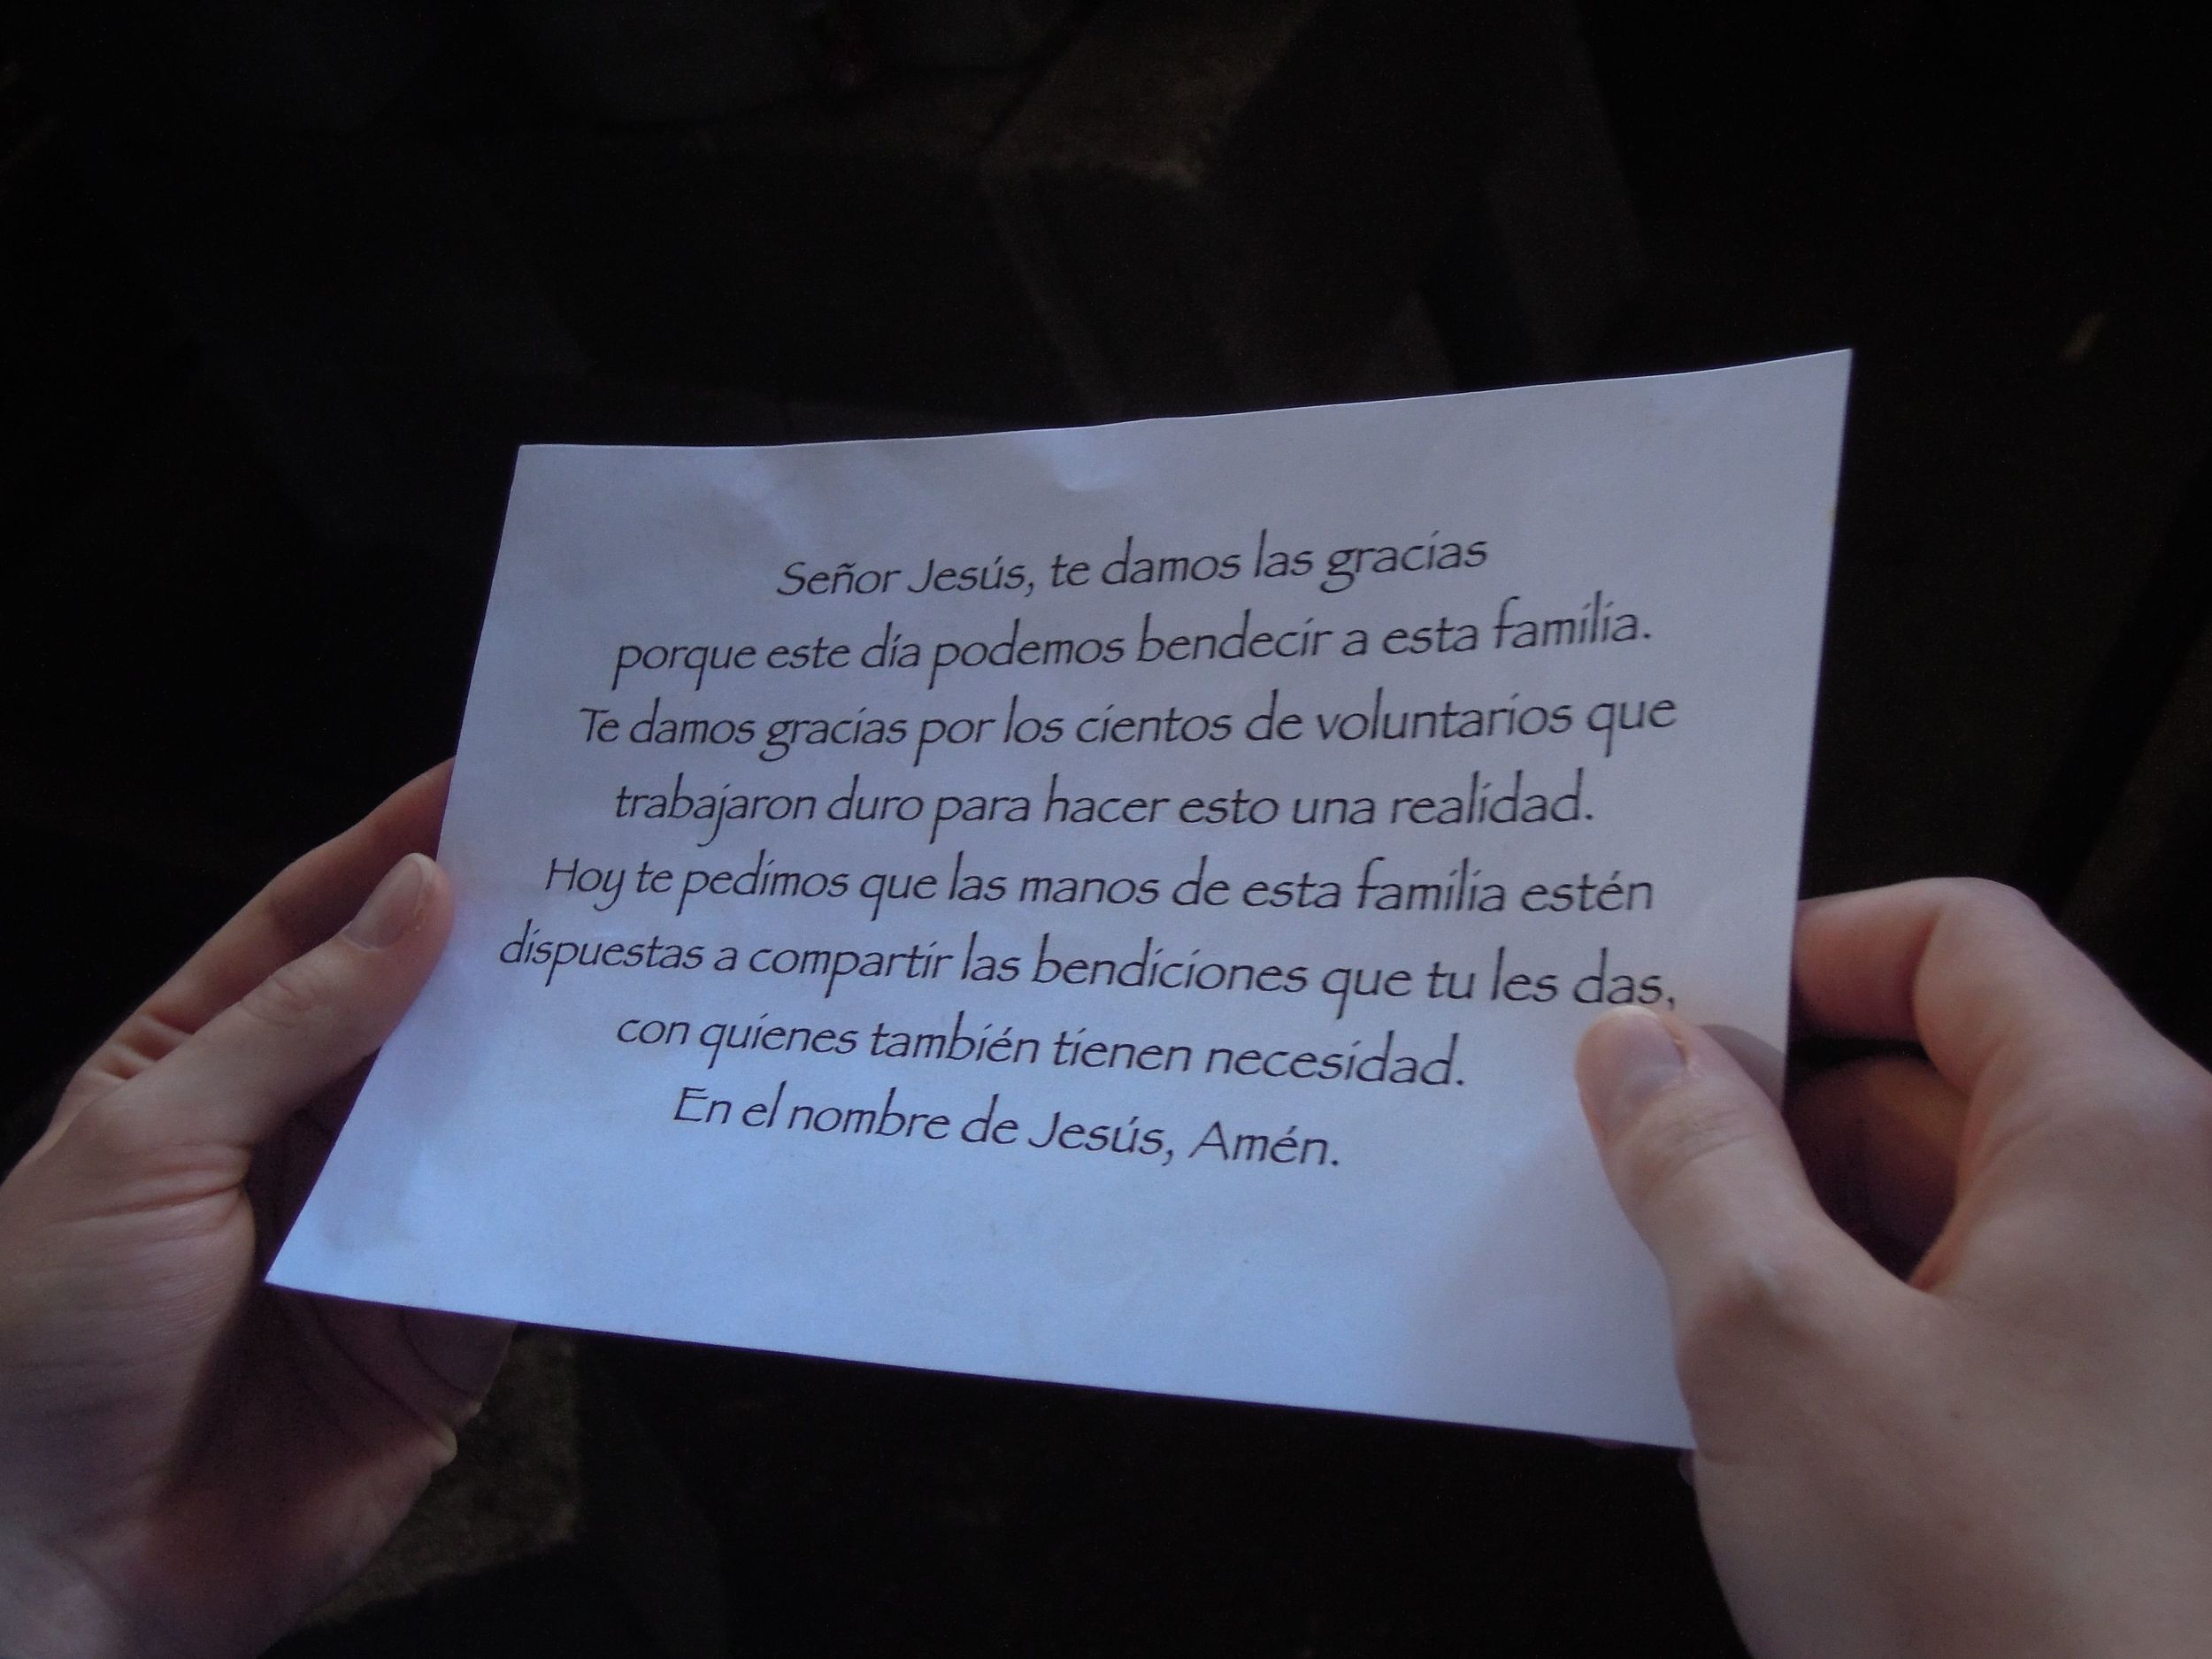 Señor Jesús, te damos las gracias
porque este día podemos bendecir a esta familia.
Te damos gracias por los cientos de voluntarios que
trabajaron duro para hacer esto una realidad.
Hoy te pedimos que las manos de esta familia estén
dispuestas a compartir las bendiciones que tu les das,
con quienes también tienen necesidad.
En el nombre de Jesús, Amén.